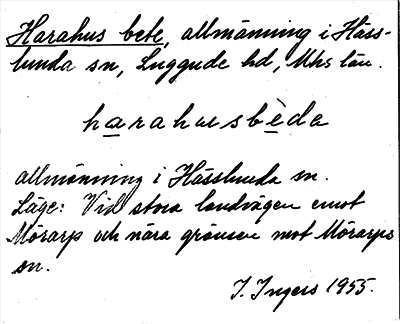 Harahus bete, allmänning i Häss-
lunda sn, Luggude hd, Mhs län.
harahusbèda
allmänning i Hässlunda sn.
Läge: Vid stora landvägen emot
Mörarp och nära gränsen mot Mörarps
sn.
I. Ingers 1955.